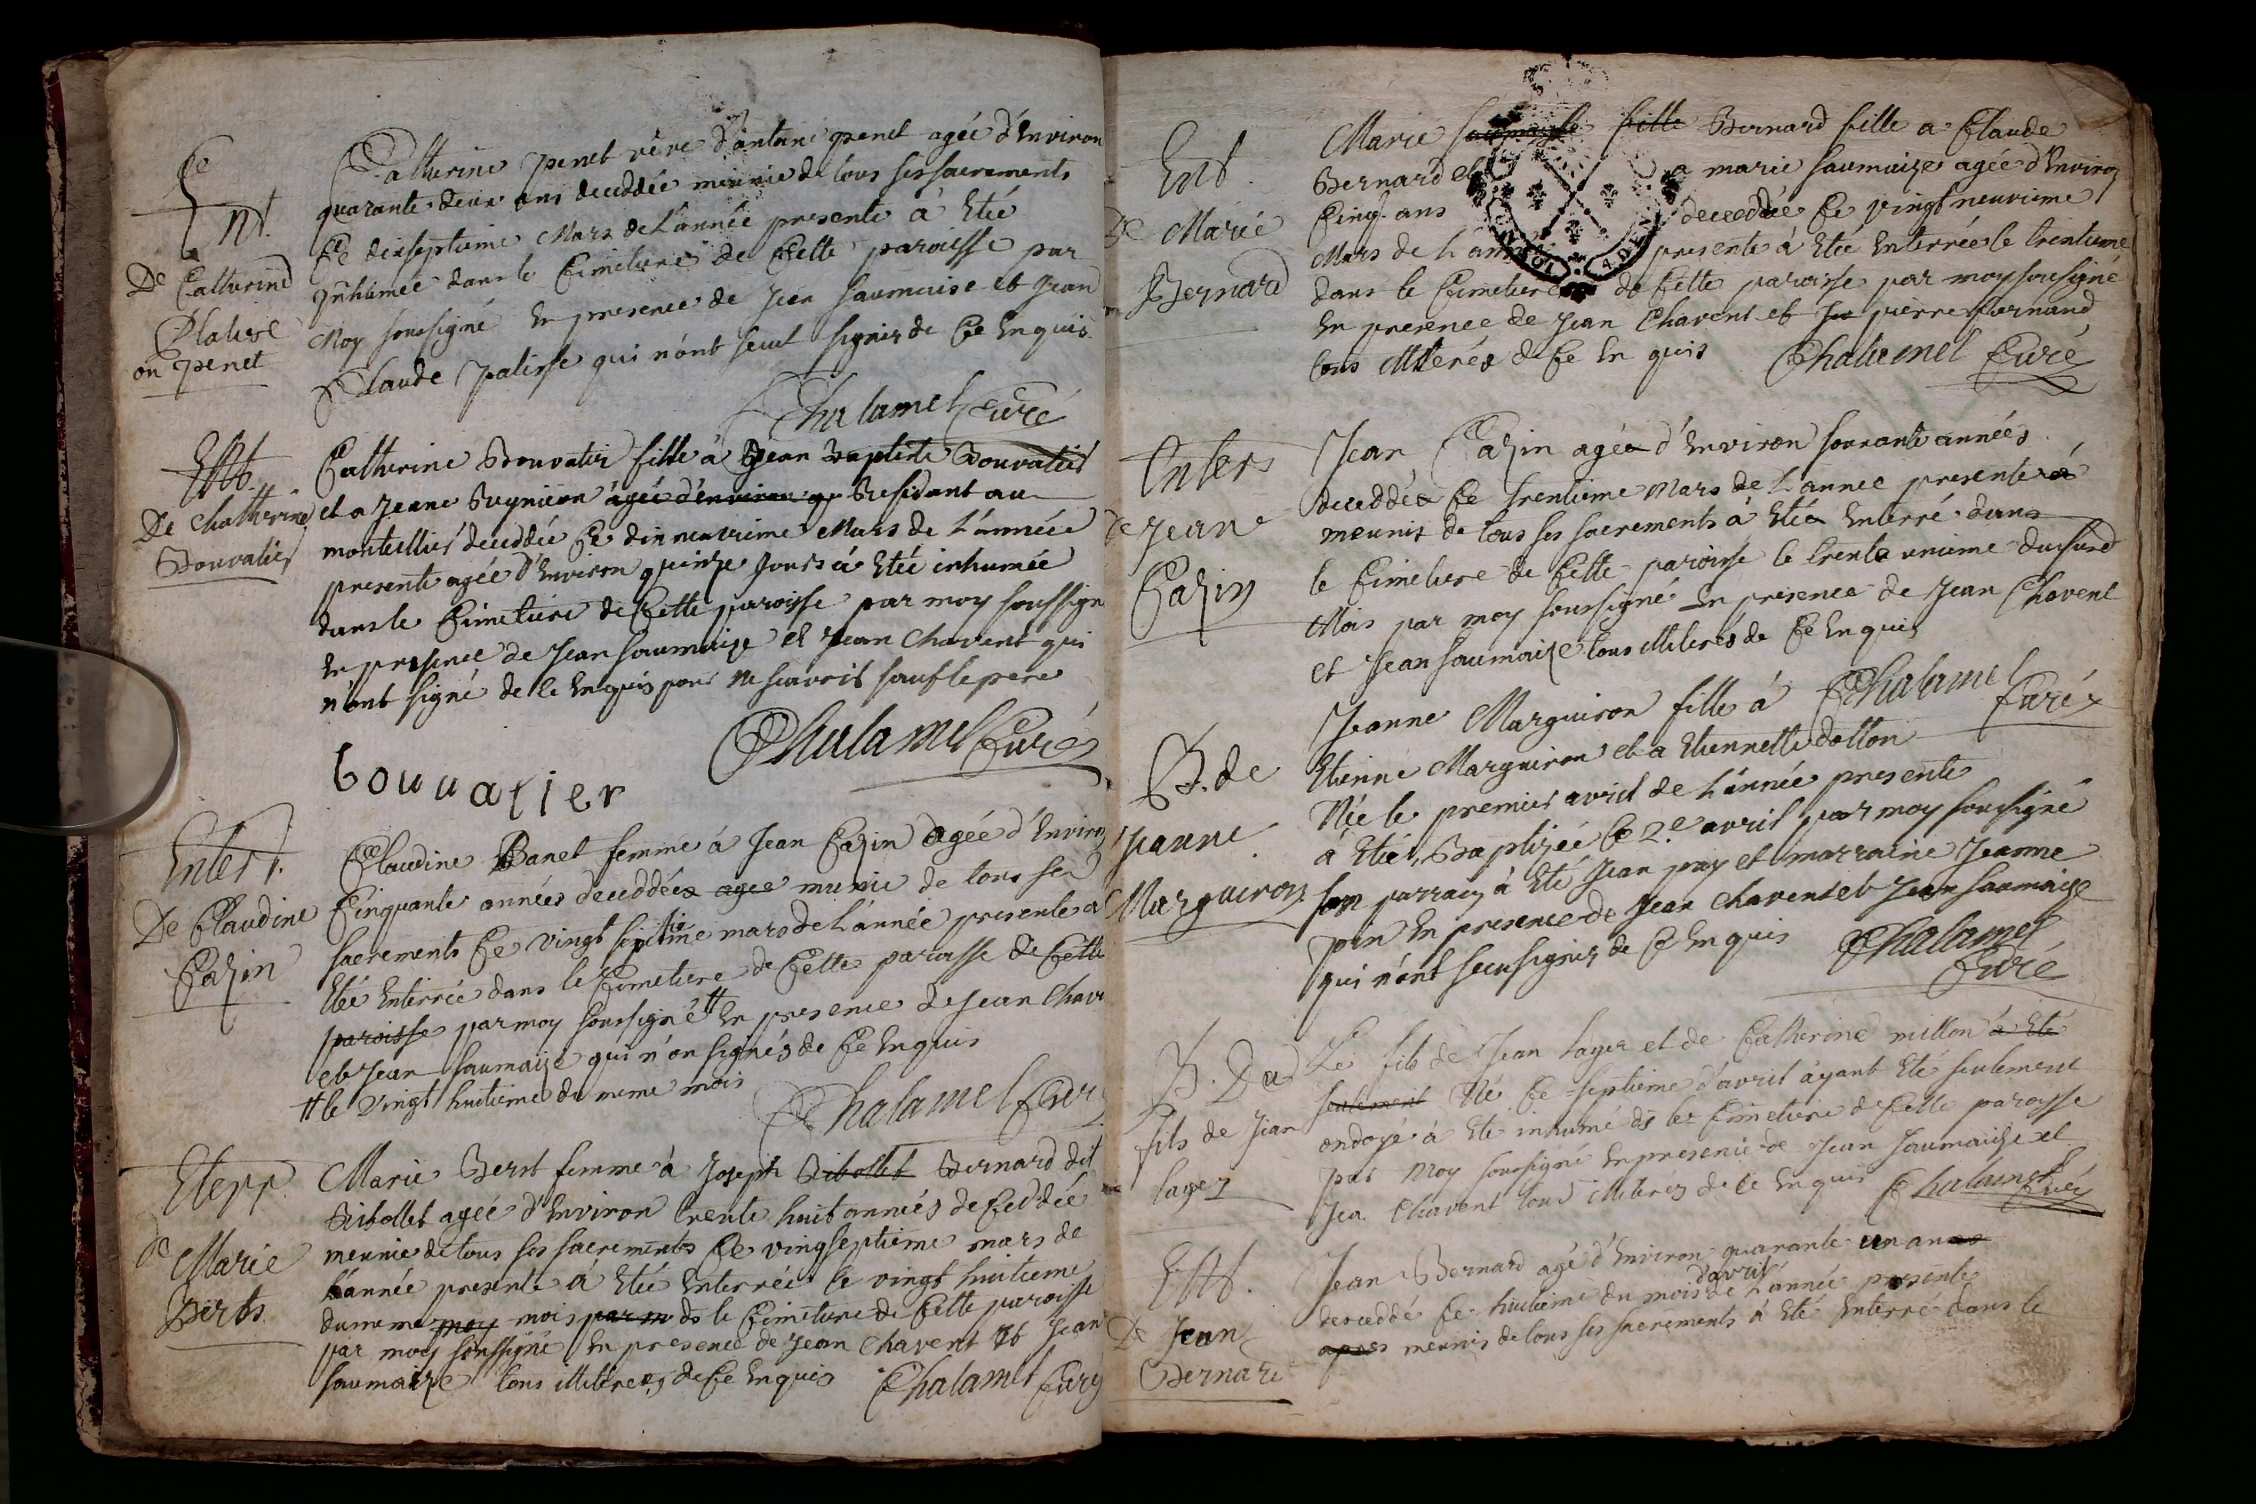 Ent.
De Catherine
Palisse
ou penet
Catherine penet vêve d'antoine penet agée d'Environ
quarante deux ans deceddée meunie de tous ses sacrements
Ce dixseptieme Mars de L'année presente à Etée
Inhumée dans le Cimetiere de Cette paroisse par
Moy soussigné En presence de Jean Saumaise et Jean
Claude palisse qui n'ont sceut signér de Ce Enquis
Chalamel Curé
Ent.
De Chatherine
Bouvatier
Catherine Bouvatier fille à Jean Baptiste Bouvatier
et a Jeane Bugniион agée d'environ Residant au
montellier deceddée Ce dixneuvieme Mars de L'année
presente agée d'Environ quinze Jours à Etée inhumée
dans le Cimetiere de Cette paroisse par moy soussigné
En presence de Jean Saumaize et Jean Chavent qui
n'ont signé de Ce Enquis pour ne scavoir sauf le pere
Chalamel Curé
bouuatier
Enterr.
De Claudine
Cazin
Claudine Banet femme à Jean Cazin agée d'Environ
Cinquante années deceddée agee munie de tous ses
sacrements Ce vingt septieme mars de L'année presente a
Etée Enterrée dans le Cimetiere de Cette paroisse de Cette
paroisse par moy soussigné # En presence de Jean Chave
et Jean Saumaize qui n'on signés de Ce Enquis
# le vingt huitieme du meme mois
Chalamel Curé
Eterr.
de
Marie
Berts
Marie Bert femme à Joseph Ribollet Bernard dit
Ribollet agée d'Environ trente huit années deceddée
meunie de tous ses sacrements Ce vingseptieme mars de
L'année presente à Etée Enterrée le vingt huitieme
du meme moy mois par m ds le Cimetiere de Cette paroisse
par moy soussigné En presence de Jean Chavent et Jean
Saumaize tous illiterés de Ce Enquis
Chalamel Curé
Ent.
De Marie
Bernard
Marie fille Bernard fille a Claude
Bernard et a marie Saumaize agée d'Environ
Cinq ans deceddée Ce vingt neuvieme
Mars de L'année presente à Etée Enterrée le trentieme
dans le Cimetiere de Cette paroisse par moy soussigné
En presence de Jean Chavent et Je pierre fornand
tous illiterés de Ce En quis
Chalamel Curé
4 DEN
Enterr
de Jean
Cazin
Jean Cazin agée d'Environ soixante années
deceddé Ce trentieme Mars de L'année presente
meunit de tous ses sacrements à Etée Enterré dans
le Cimetiere de Cette paroisse le trente unieme dususd
Mois par moy soussigné En presence de Jean Chavent
et Jean Saumaize tous illiterés de Ce Enquis
Chalamel
Curé
B. de
Jeanne
Marguiron
Jeanne Marguiron fille à
Etienne Marguiron et a Etiennette dotton
Née le premier avril de L'année presente
à Etée Baptizée Ce 2.e avril par moy soussigné
son parrain à Eté Jean pin et marraine Jeanne
pin En presence de Jean Chavent et Jean Saumaize
qui n'ont sceu signér de Ce Enquis
Chalamel
Curé
B. Du
fils de Jean
Layer
Le fils de Jean Layer et de Catherine millon a Eté
seulement Né Ce septieme d'avril ayant Eté seulement
ondoyé à Eté inhumé ds le Cimetiere de Cette paroisse
par moy soussigné En presence de Jean Saumaize et
Jea. Chavent tous illiterés de Ce Enquis
Chalamel
Curé
Ent.
De Jean
Bernard
Jean Bernard agé d'Environ quarante un ans
d'avril
deceddé Ce huitieme du mois de L'année presente
apres meunis de tous ses sacrements à Eté Enterré dans le